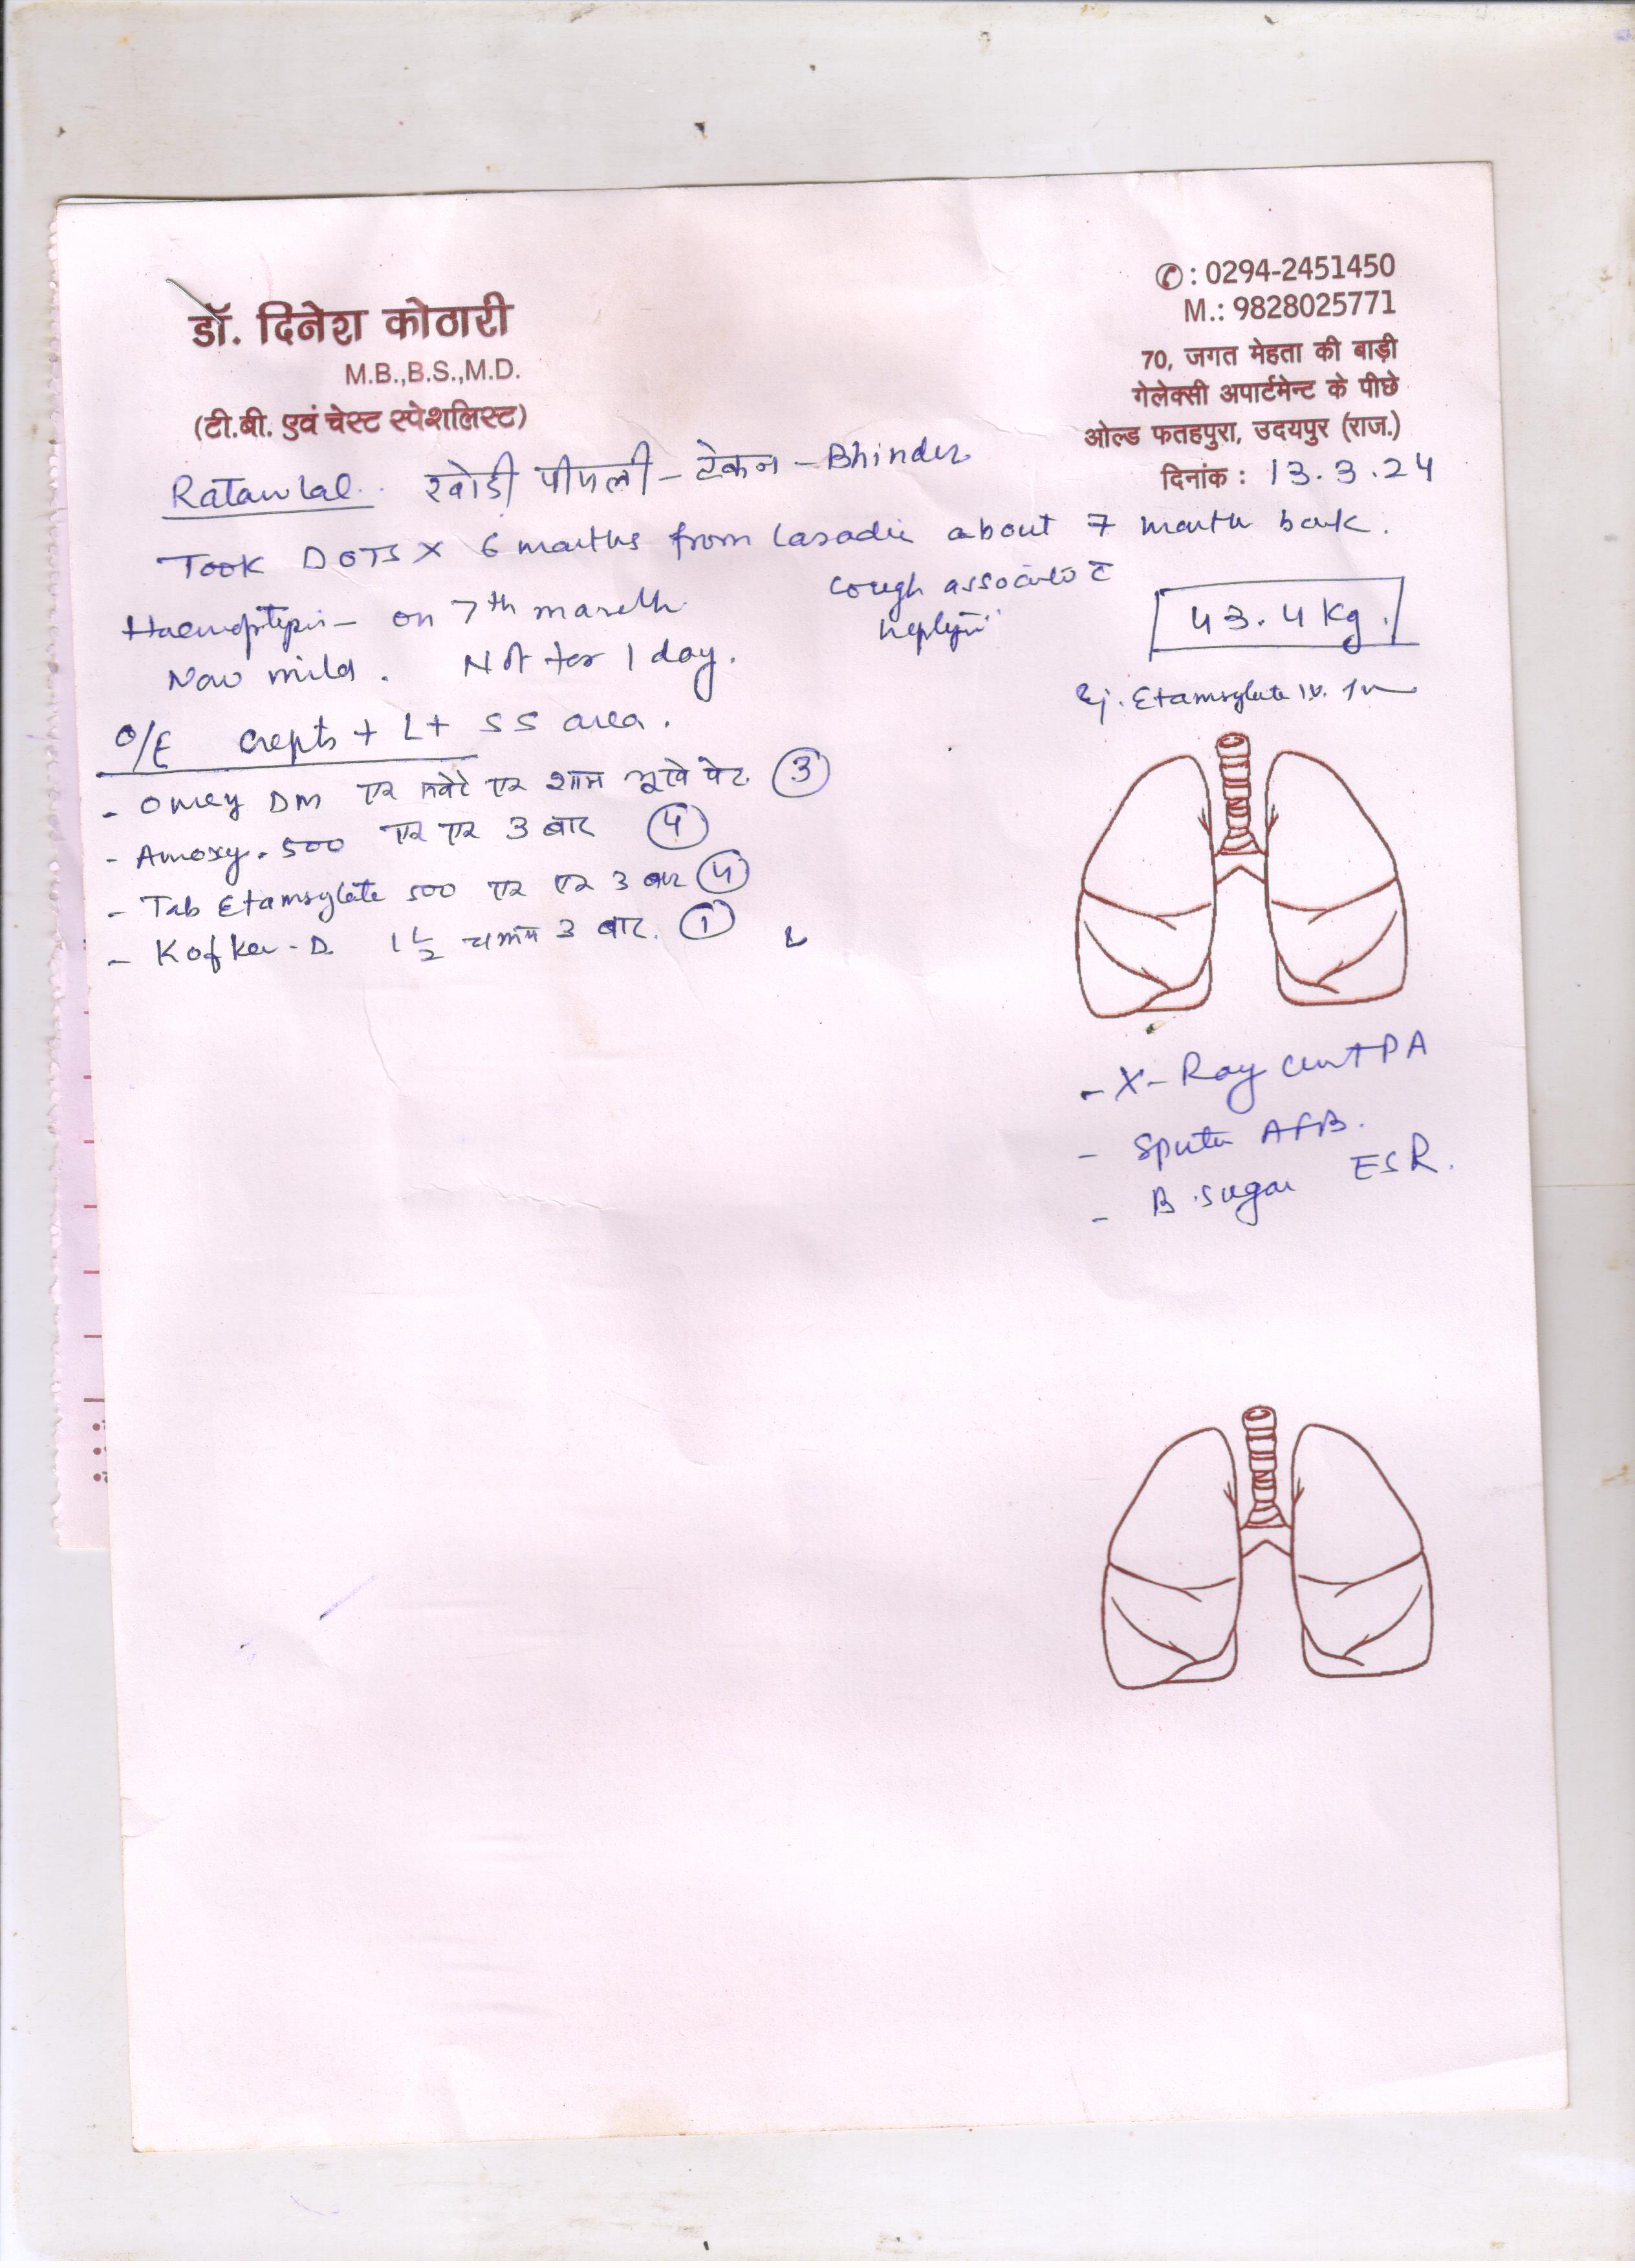 डॉ. दिनेश कोठारी
M.B.,B.S.,M.D.
(टी.बी. एवं चेस्ट स्पेशलिस्ट)
✆: 0294-2451450
M.: 9828025771
70, जगत मेहता की बाड़ी
गेलेक्सी अपार्टमेन्ट के पीछे
ओल्ड फतहपुरा, उदयपुर (राज.)
दिनांक : 13.3.24
Ratanlal. पीपली - - Bhinder
Took DOTS x 6 months from about 7 month back.
on 7th
Cough associate c̄
43.4 Kg.
Now mild. Not for 1 day.
Inj. Etamsylate IV.
O/E crepts + L+ SS area.
- Omey DM एक एक शाम भूखे पेट (3)
- Amoxy. 500 एक एक 3 बार (4)
- Tab Etamsylate 500 एक एक 3 बार (4)
- D. 1½ चम्मच 3 बार. (1)
- X-Ray PA
- AFB.
- B. sugar ESR.